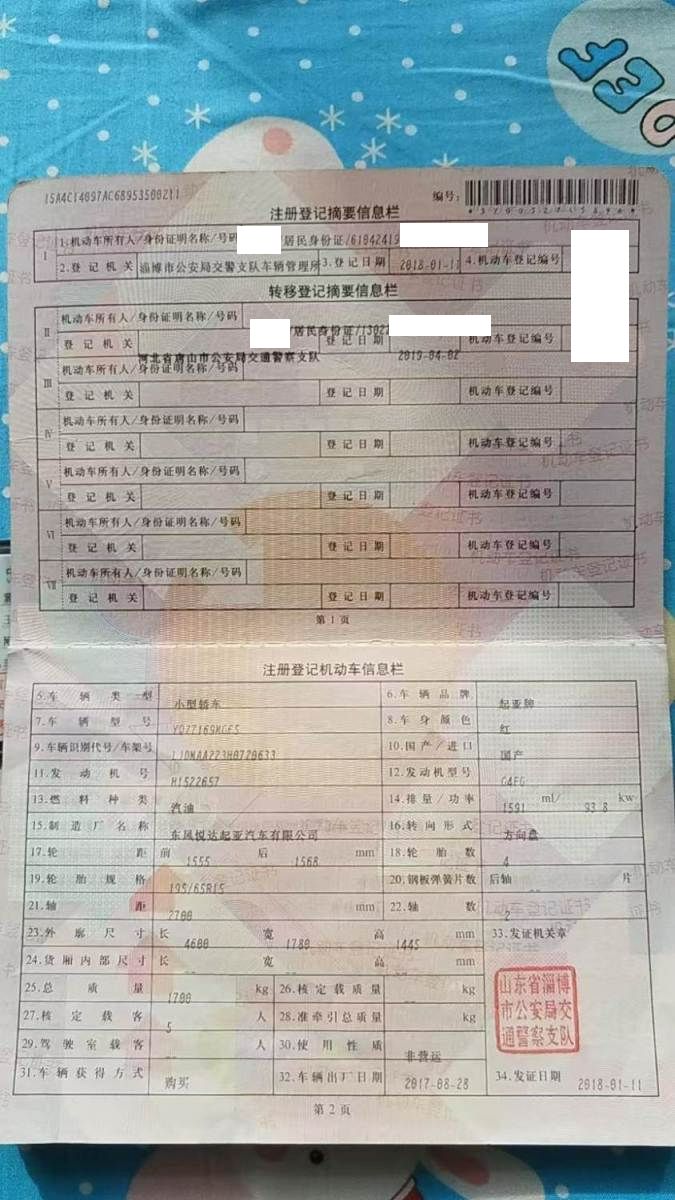 15A4C14097AC6B953500211
编号:
注册登记摘要信息栏
I 1.机动车所有人/身份证明名称/号码 居民身份证/61042419
2.登记机关 淄博市公安局交警支队车辆管理所 3.登记日期 2018-01-11 4.机动车登记编号
转移登记摘要信息栏
II 机动车所有人/身份证明名称/号码 居民身份证/1302
登记机关 登记日期 机动车登记编号
河北省唐山市公安局交通警察支队 2019-04-02
III 机动车所有人/身份证明名称/号码
登记机关 登记日期 机动车登记编号
IV 机动车所有人/身份证明名称/号码
登记机关 登记日期 机动车登记编号
V 机动车所有人/身份证明名称/号码
登记机关 登记日期 机动车登记编号
VI 机动车所有人/身份证明名称/号码
登记机关 登记日期 机动车登记编号
VII 机动车所有人/身份证明名称/号码
登记机关 登记日期 机动车登记编号
第1页
注册登记机动车信息栏
5.车辆类型 小型轿车 6.车辆品牌 起亚牌
7.车辆型号 8.车身颜色 红
9.车辆识别代号/车架号 10.国产/进口 国产
11.发动机号 H1522657 12.发动机型号 G4FG
13.燃料种类 汽油 14.排量/功率 1591 ml/ 93.8 kw
15.制造厂名称 东风悦达起亚汽车有限公司 16.转向形式 方向盘
17.轮距 前 1555 后 1568 mm 18.轮胎数 4
19.轮胎规格 195/65R15 20.钢板弹簧片数 后轴 -- 片
21.轴距 2700 mm 22.轴数 2
23.外廓尺寸 长 4600 宽 1780 高 1445 mm 33.发证机关章
24.货厢内部尺寸 长 -- 宽 -- 高 -- mm
25.总质量 1700 kg 26.核定载质量 -- kg
27.核定载客 5 人 28.准牵引总质量 -- kg
29.驾驶室载客 -- 人 30.使用性质 非营运
31.车辆获得方式 购买 32.车辆出厂日期 2017-08-28 34.发证日期 2018-01-11
山东省淄博
市公安局交
通警察支队
第2页